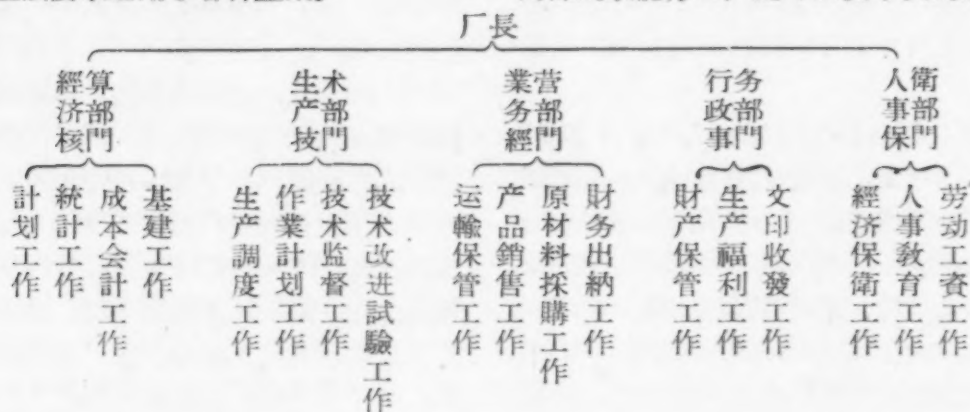 厂長
經济核算部門
生产技术部門
業务經营部門
行政事务部門
人事保衛部門
計划工作
統計工作
成本会計工作
基建工作
生产調度工作
作業計划工作
技术监督工作
技术改进試驗工作
运輸保管工作
产品銷售工作
原材料採購工作
財务出納工作
財产保管工作
生产福利工作
文印收發工作
經济保衛工作
人事教育工作
劳动工資工作